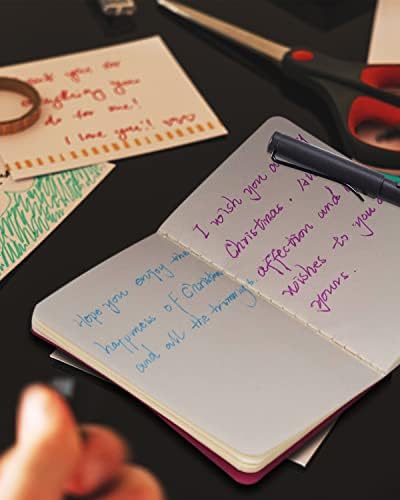 Thank you for
everything you
do to me!
I love you!!
Hope you enjoy the
happness of Christmas
and all the trimmings.
I wish you a
Christmas.
affection and
wishes to you
yours.